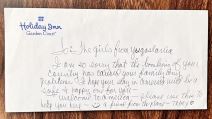 Holiday Inn
Garden Court
To: The girls from Yugoslavia
I am so sorry that the bombing of your
Country has caused your family any
problems. I hope your stay in America will be a
safe & happy one for you —
Welcome to America — please use this to
help you
a friend from